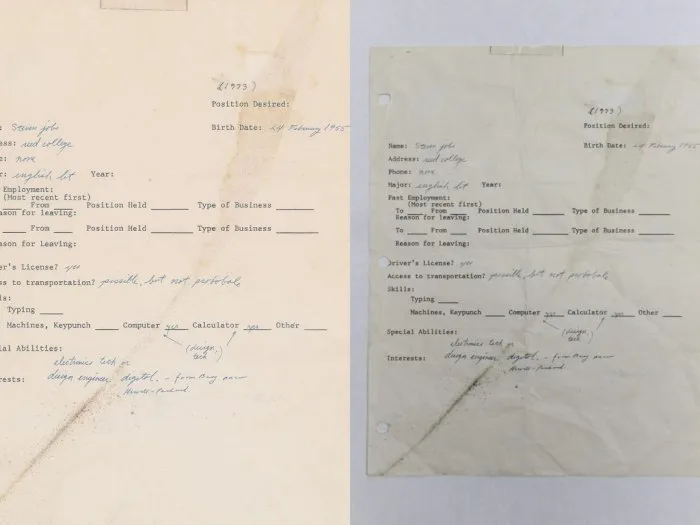 (1973)
Position Desired:
Birth Date: 24 February 1955
: Steven jobs
ss: reed college
e: none
r: english lit Year:
Employment:
(Most recent first)
From Position Held Type of Business
eason for leaving:
From Position Held Type of Business
eason for leaving:
er's License? yes
ss to transportation? possible, but not probable
ls:
Typing
Machines, Keypunch Computer yes Calculator yes Other
(design,
tech)
al Abilities:
electronics tech or
rests: design engineer. digital. – from Bay near
Hewitt-Packard
(1973)
Position Desired:
Birth Date: 24 February 1955
Name: Steven jobs
Address: reed college
Phone: none
Major: english lit Year:
Past Employment:
(Most recent first)
To From Position Held Type of Business
Reason for leaving:
To From Position Held Type of Business
Reason for leaving:
Driver's License? yes
Access to transportation? possible, but not probable
Skills:
Typing
Machines, Keypunch Computer yes Calculator yes Other
(design,
tech)
Special Abilities:
electronics tech or
Interests: design engineer. digital. – from Bay near
Hewitt-Packard